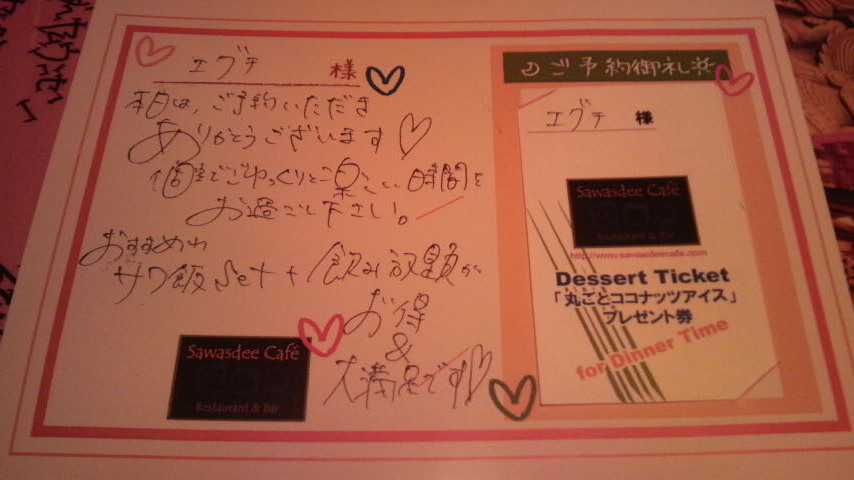 エグチ 様
本日は、ご予約いただき
ありがとうございます♡
個室でごゆっくりと楽しい時間を
お過ごし下さい。
おすすめは
サワ飯Set+飲み放題が
お得
&
大満足です♡
Sawasdee Café
Restaurant & Bar
ご予約御礼
エグチ 様
Sawasdee Café
Restaurant & Bar
http://www.sawasdeecafe.com
Dessert Ticket
「丸ごとココナッツアイス」
プレゼント券
for Dinner Time